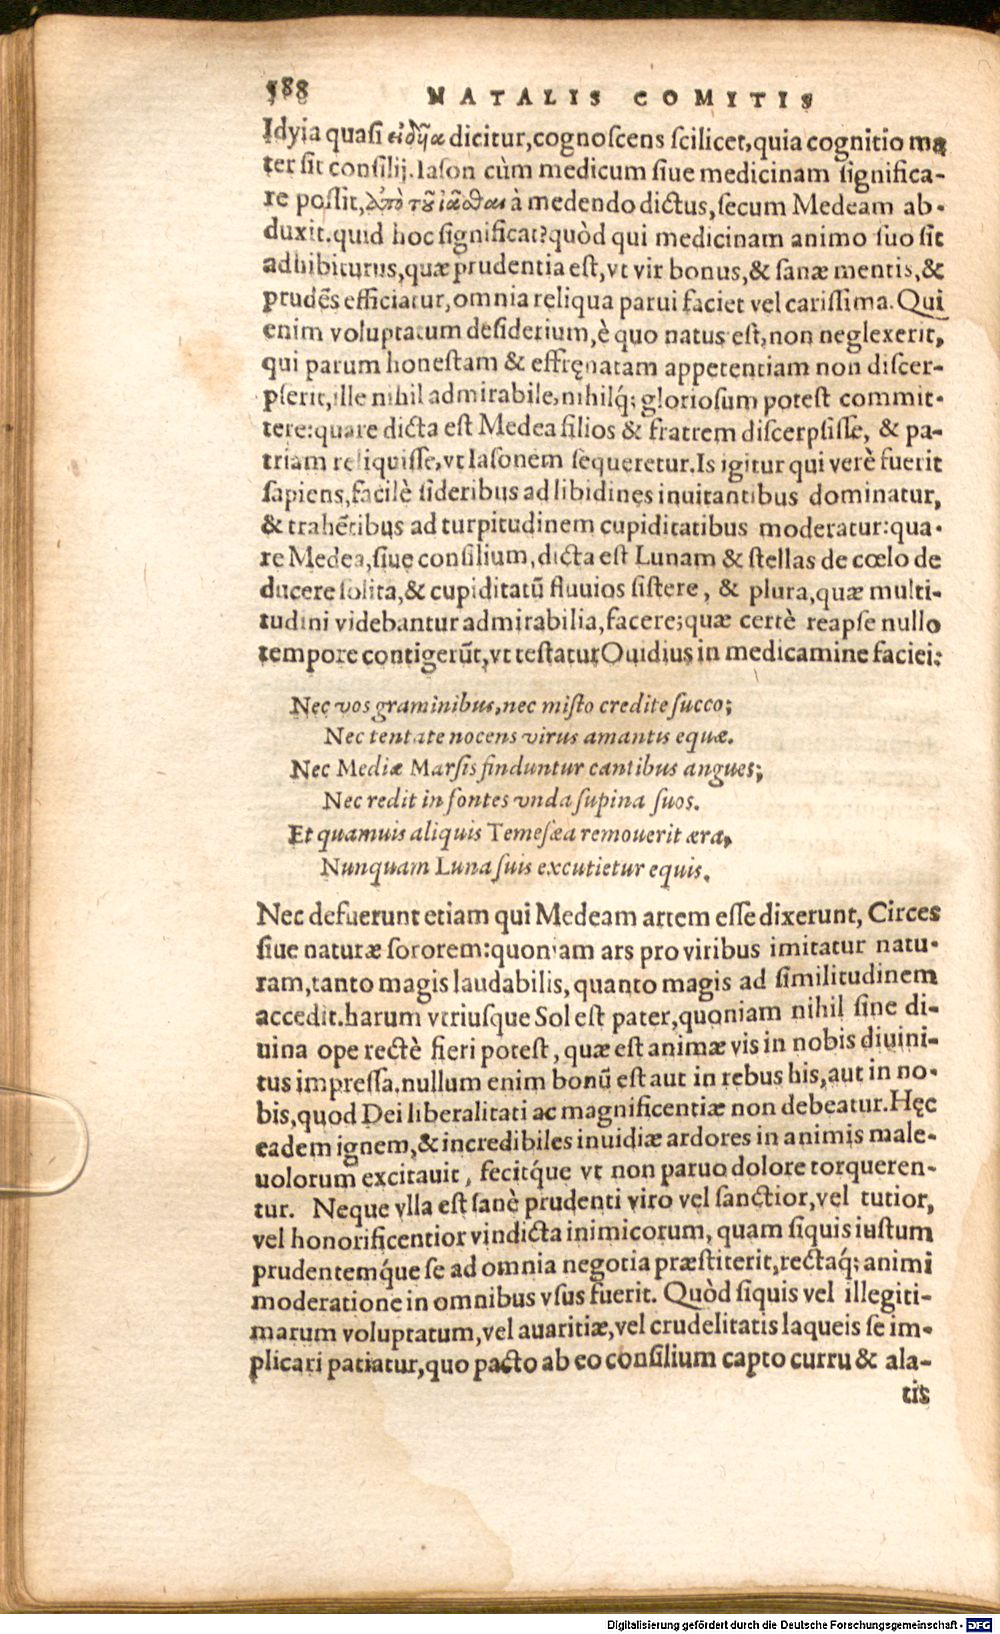 588 NATALIS COMITIS
Idyia quasi εἰδῦῖα dicitur, cognoscens scilicet, quia cognitio ma
ter sit consilij. Iason cùm medicum siue medicinam significa-
re possit, ἀπὸ τοῦ ἰᾶσθαι à medendo dictus, secum Medeam ab-
duxit. quid hoc significat? quòd qui medicinam animo suo sit
adhibiturus, quæ prudentia est, vt vir bonus, & sanæ mentis, &
prudẽs efficiatur, omnia reliqua parui faciet vel carissima. Qui
enim voluptatum desiderium, è quo natus est, non neglexerit,
qui parum honestam & effręnatam appetentiam non discer-
pserit, ille nihil admirabile, nihilq́; gloriosum potest commit-
tere: quare dicta est Medea filios & fratrem discerpsisse, & pa-
triam reliquisse, vt Iasonem sequeretur. Is igitur qui verè fuerit
sapiens, facilè sideribus ad libidines inuitantibus dominatur,
& trahẽtibus ad turpitudinem cupiditatibus moderatur: qua-
re Medea, siue consilium, dicta est Lunam & stellas de cœlo de
ducere solita, & cupiditatũ fluuios sistere, & plura, quæ multi-
tudini videbantur admirabilia, facere; quæ certè reapse nullo
tempore contigerũt, vt testatur Ouidius in medicamine faciei:
Nec vos graminibus, nec misto credite succo;
Nec tentate nocens virus amantis equæ.
Nec Mediæ Marsis finduntur cantibus angues;
Nec redit in fontes vnda supina suos.
Et quamuis aliquis Temesæa remouerit æra,
Nunquam Luna suis excutietur equis.
Nec defuerunt etiam qui Medeam artem esse dixerunt, Circes
siue naturæ sororem: quoniam ars pro viribus imitatur natu-
ram, tanto magis laudabilis, quanto magis ad similitudinem
accedit. harum vtriusque Sol est pater, quoniam nihil sine di-
uina ope rectè fieri potest, quæ est animæ vis in nobis diuini-
tus impressa. nullum enim bonũ est aut in rebus his, aut in no-
bis, quod Dei liberalitati ac magnificentiæ non debeatur. Hęc
eadem ignem, & incredibiles inuidiæ ardores in animis male-
uolorum excitauit, fecitq́ue vt non paruo dolore torqueren-
tur. Neque vlla est sanè prudenti viro vel sanctior, vel tutior,
vel honorificentior vindicta inimicorum, quam siquis iustum
prudentemq́ue se ad omnia negotia præstiterit, rectaq́; animi
moderatione in omnibus vsus fuerit. Quòd siquis vel illegiti-
marum voluptatum, vel auaritiæ, vel crudelitatis laqueis se im-
plicari patiatur, quo pacto ab eo consilium capto curru & ala-
tis
Digitalisierung gefördert durch die Deutsche Forschungsgemeinschaft - DFG